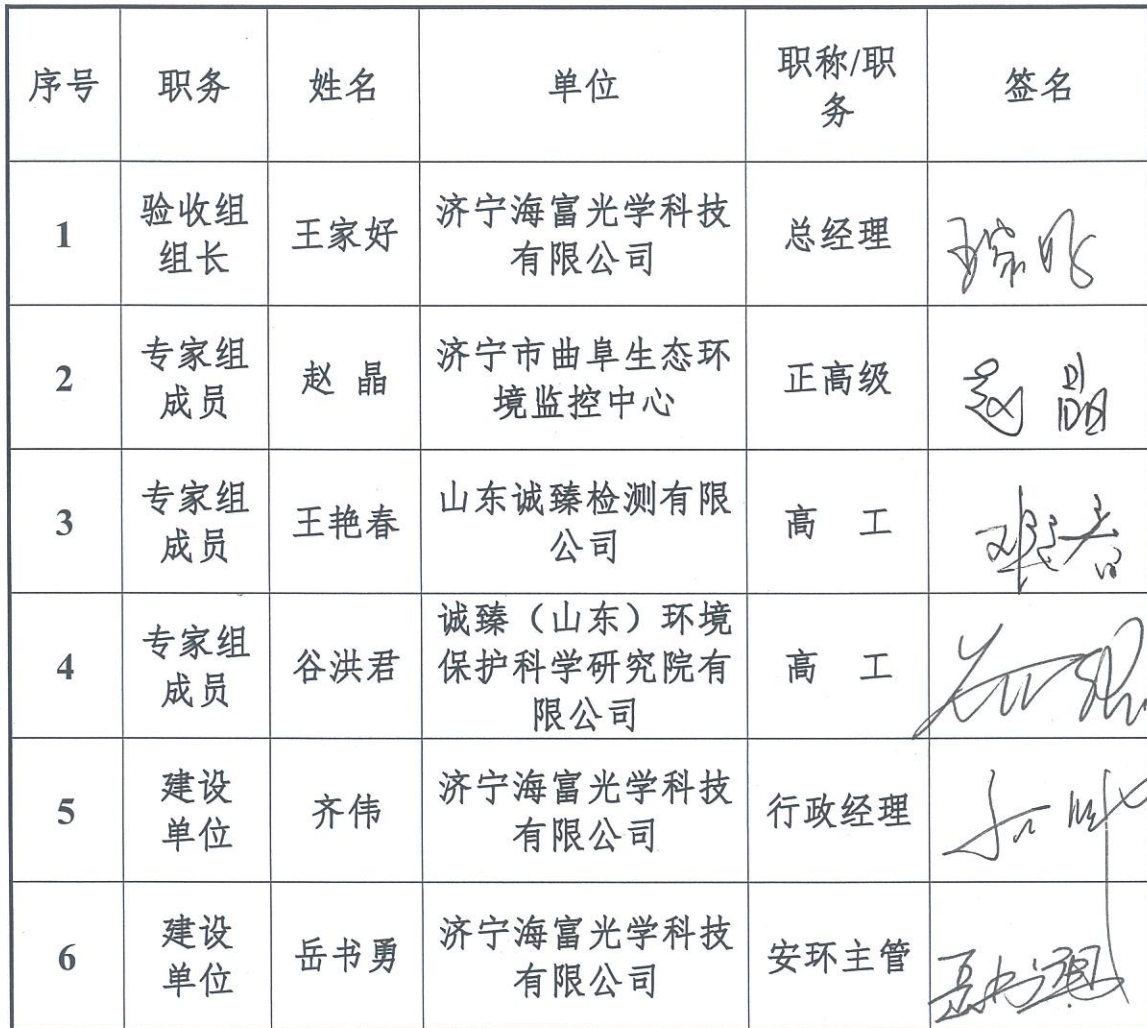 序号 职务 姓名 单位 职称/职
务 签名
1 验收组
组长 王家好 济宁海富光学科技
有限公司 总经理
2 专家组
成员 赵 晶 济宁市曲阜生态环
境监控中心 正高级 赵晶
3 专家组
成员 王艳春 山东诚臻检测有限
公司 高 工
4 专家组
成员 谷洪君 诚臻（山东）环境
保护科学研究院有
限公司 高 工
5 建设
单位 齐伟 济宁海富光学科技
有限公司 行政经理
6 建设
单位 岳书勇 济宁海富光学科技
有限公司 安环主管